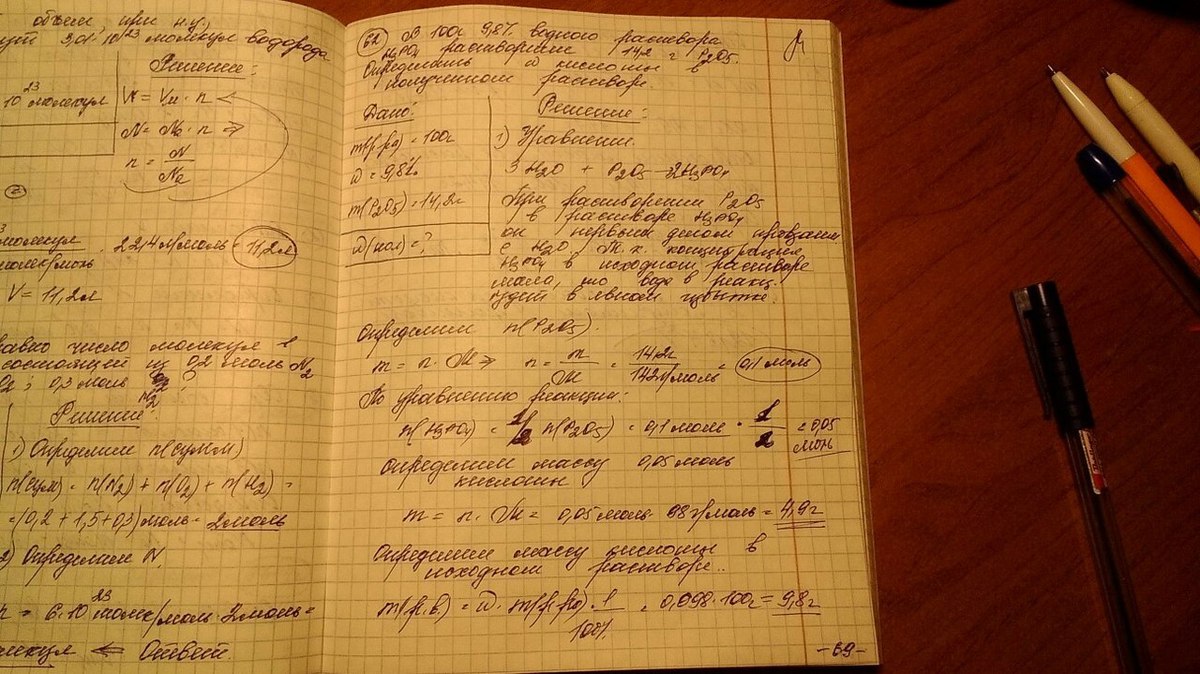 объем, при н.у.,
3,01·10²³ молекул водорода
Решение:
10²³ молекул
V = Vм · n ⇐
N = Nа · n ⇒
n = N/Nа
молекул
22,4 л/моль = 11,2л
V = 11,2л
число молекул в
состоящей из 0,2 моль N₂
0,3 моль H₂?
Решение:
1) Определим n(сумм)
n(сум) = n(N₂) + n(O₂) + n(H₂) =
=(0,2 + 1,5 + 0,3) моль = 2моль
2) Определим N.
= 6·10²³ молек/моль · 2моль =
⇐ Ответ.
62 В 100г 9,8% водного раствора
H₃PO₄ растворили 14,2 г P₂O₅.
Определить ω кислоты в
полученном растворе.
Дано:
m(р-ра) = 100г
ω = 9,8%
m(P₂O₅) = 14,2г
ω(кол) = ?
Решение:
1) Уравнение.
3H₂O + P₂O₅ = 2H₃PO₄
При растворении P₂O₅
в растворе H₃PO₄
он первым делом
с H₂O. Т.к.
H₃PO₄ в исходном растворе
мала, то вода в реакц.
будет в явном избытке.
Определим n(P₂O₅).
m = n · M ⇒ n = m/M = 14,2г/142г/моль = 0,1 моль
По уравнению реакции:
n(H₃PO₄) = 1/2 n(P₂O₅) = 0,1 моль · 1/2 = 0,05
моль
Определим массу 0,05 моль
кислоты
m = n · M = 0,05 моль · 98 г/моль = 4,9г
Определим массу кислоты в
исходном растворе..
m(р.в.) = ω · m(р-ра) · 1/100% = 0,098 · 100г = 9,8г
-69-